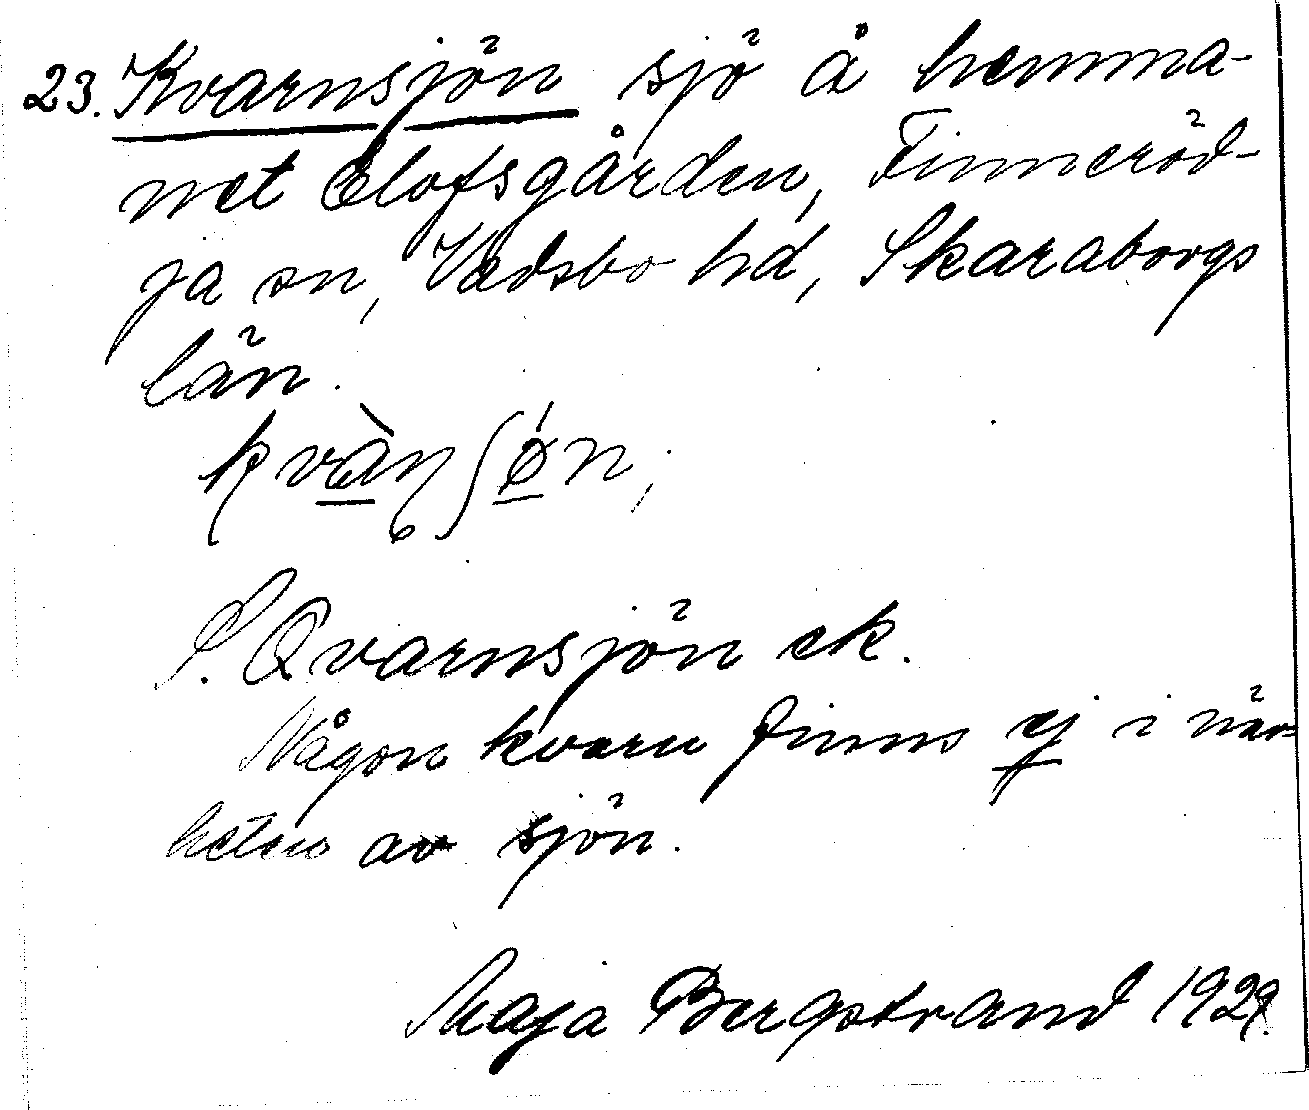 23. Kvarnsjön sjö å hemma-
net Elofsgården, Finneröd-
ja sn, Vadsbo hd, Skaraborgs
län.
kvàɳʃǿn,
S. Qvarnsjön ek.
Någon kvarn finns ej i när-
heten av sjön.
Maja Bergstrand 1929.